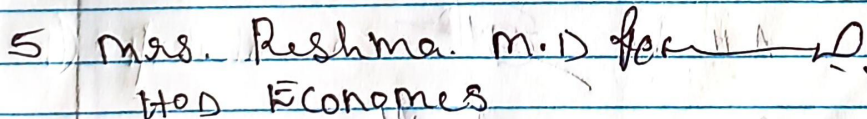 5 Mrs. Reshma. M.D
HOD Economes